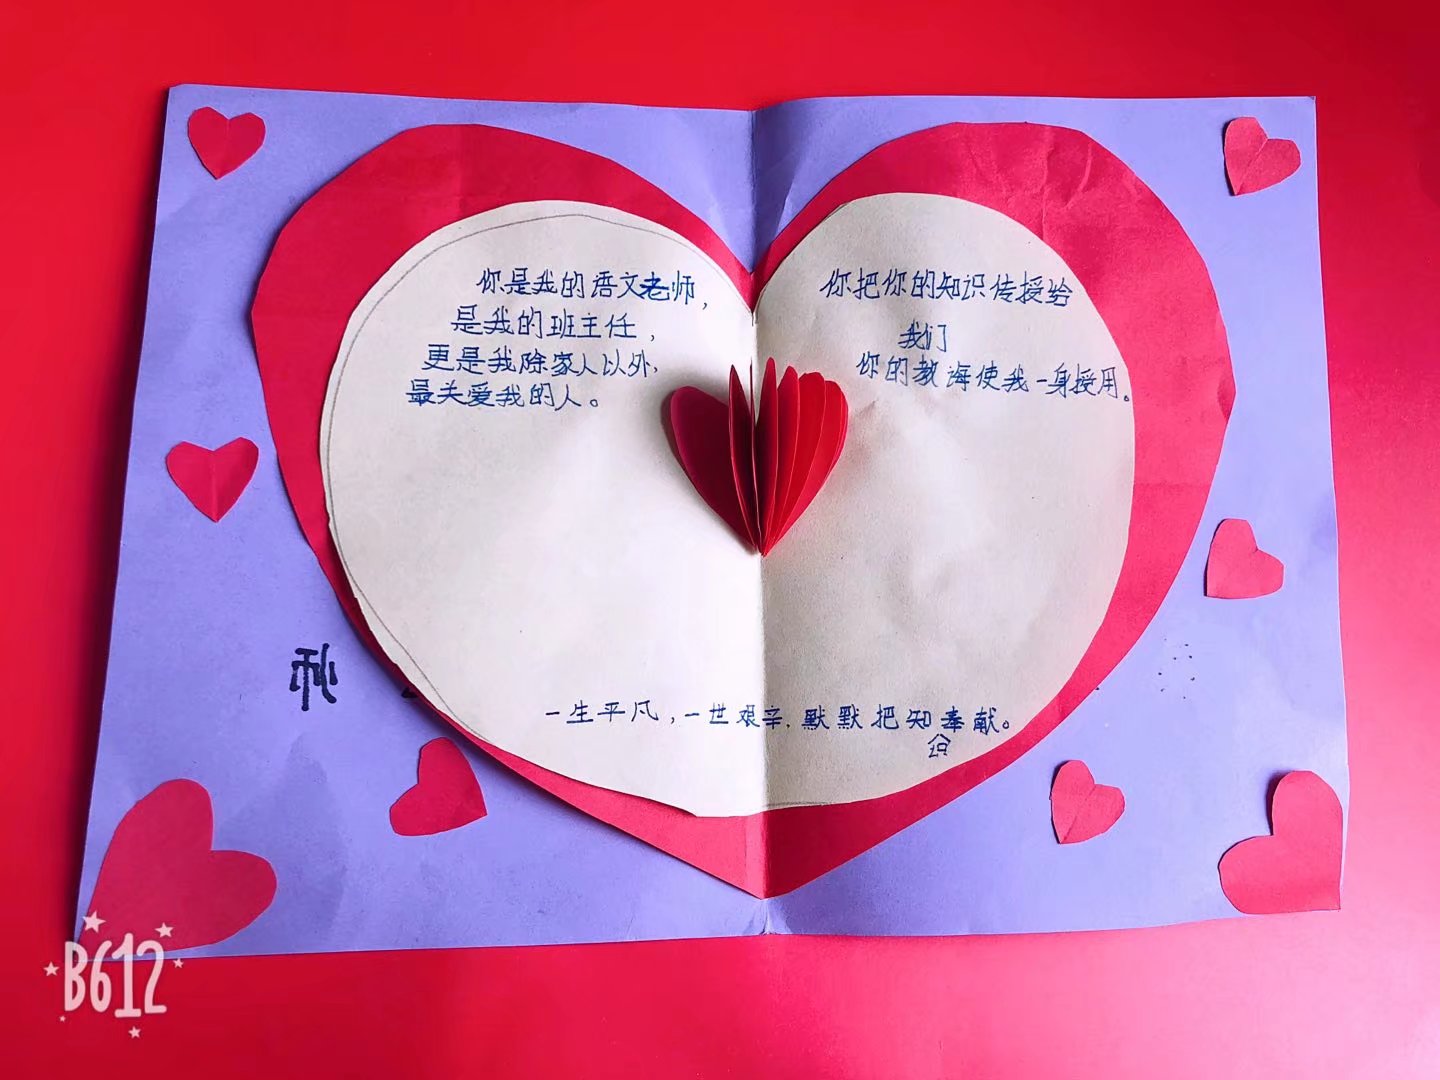 你是我的语文老师，
是我的班主任，
更是我除家人以外，
最关爱我的人。
你把你的知识传授给
我们
你的教诲使我一身授用。
一生平凡，一世艰辛，默默把知奉献。
识
B612